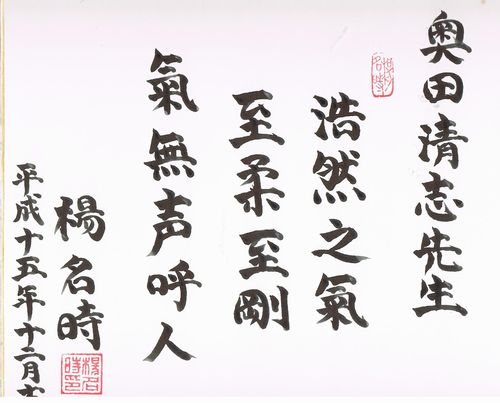 奥田清志先生
浩然之氣
至柔至剛
氣無声呼人
楊名時
平成十五年十二月